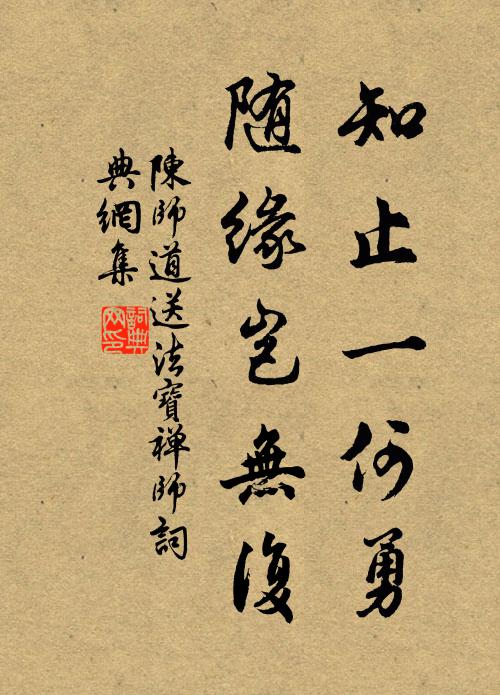 知止一何勇
随緣豈無復
陳師道送法寶禅師詞
典網集
詞典
网印